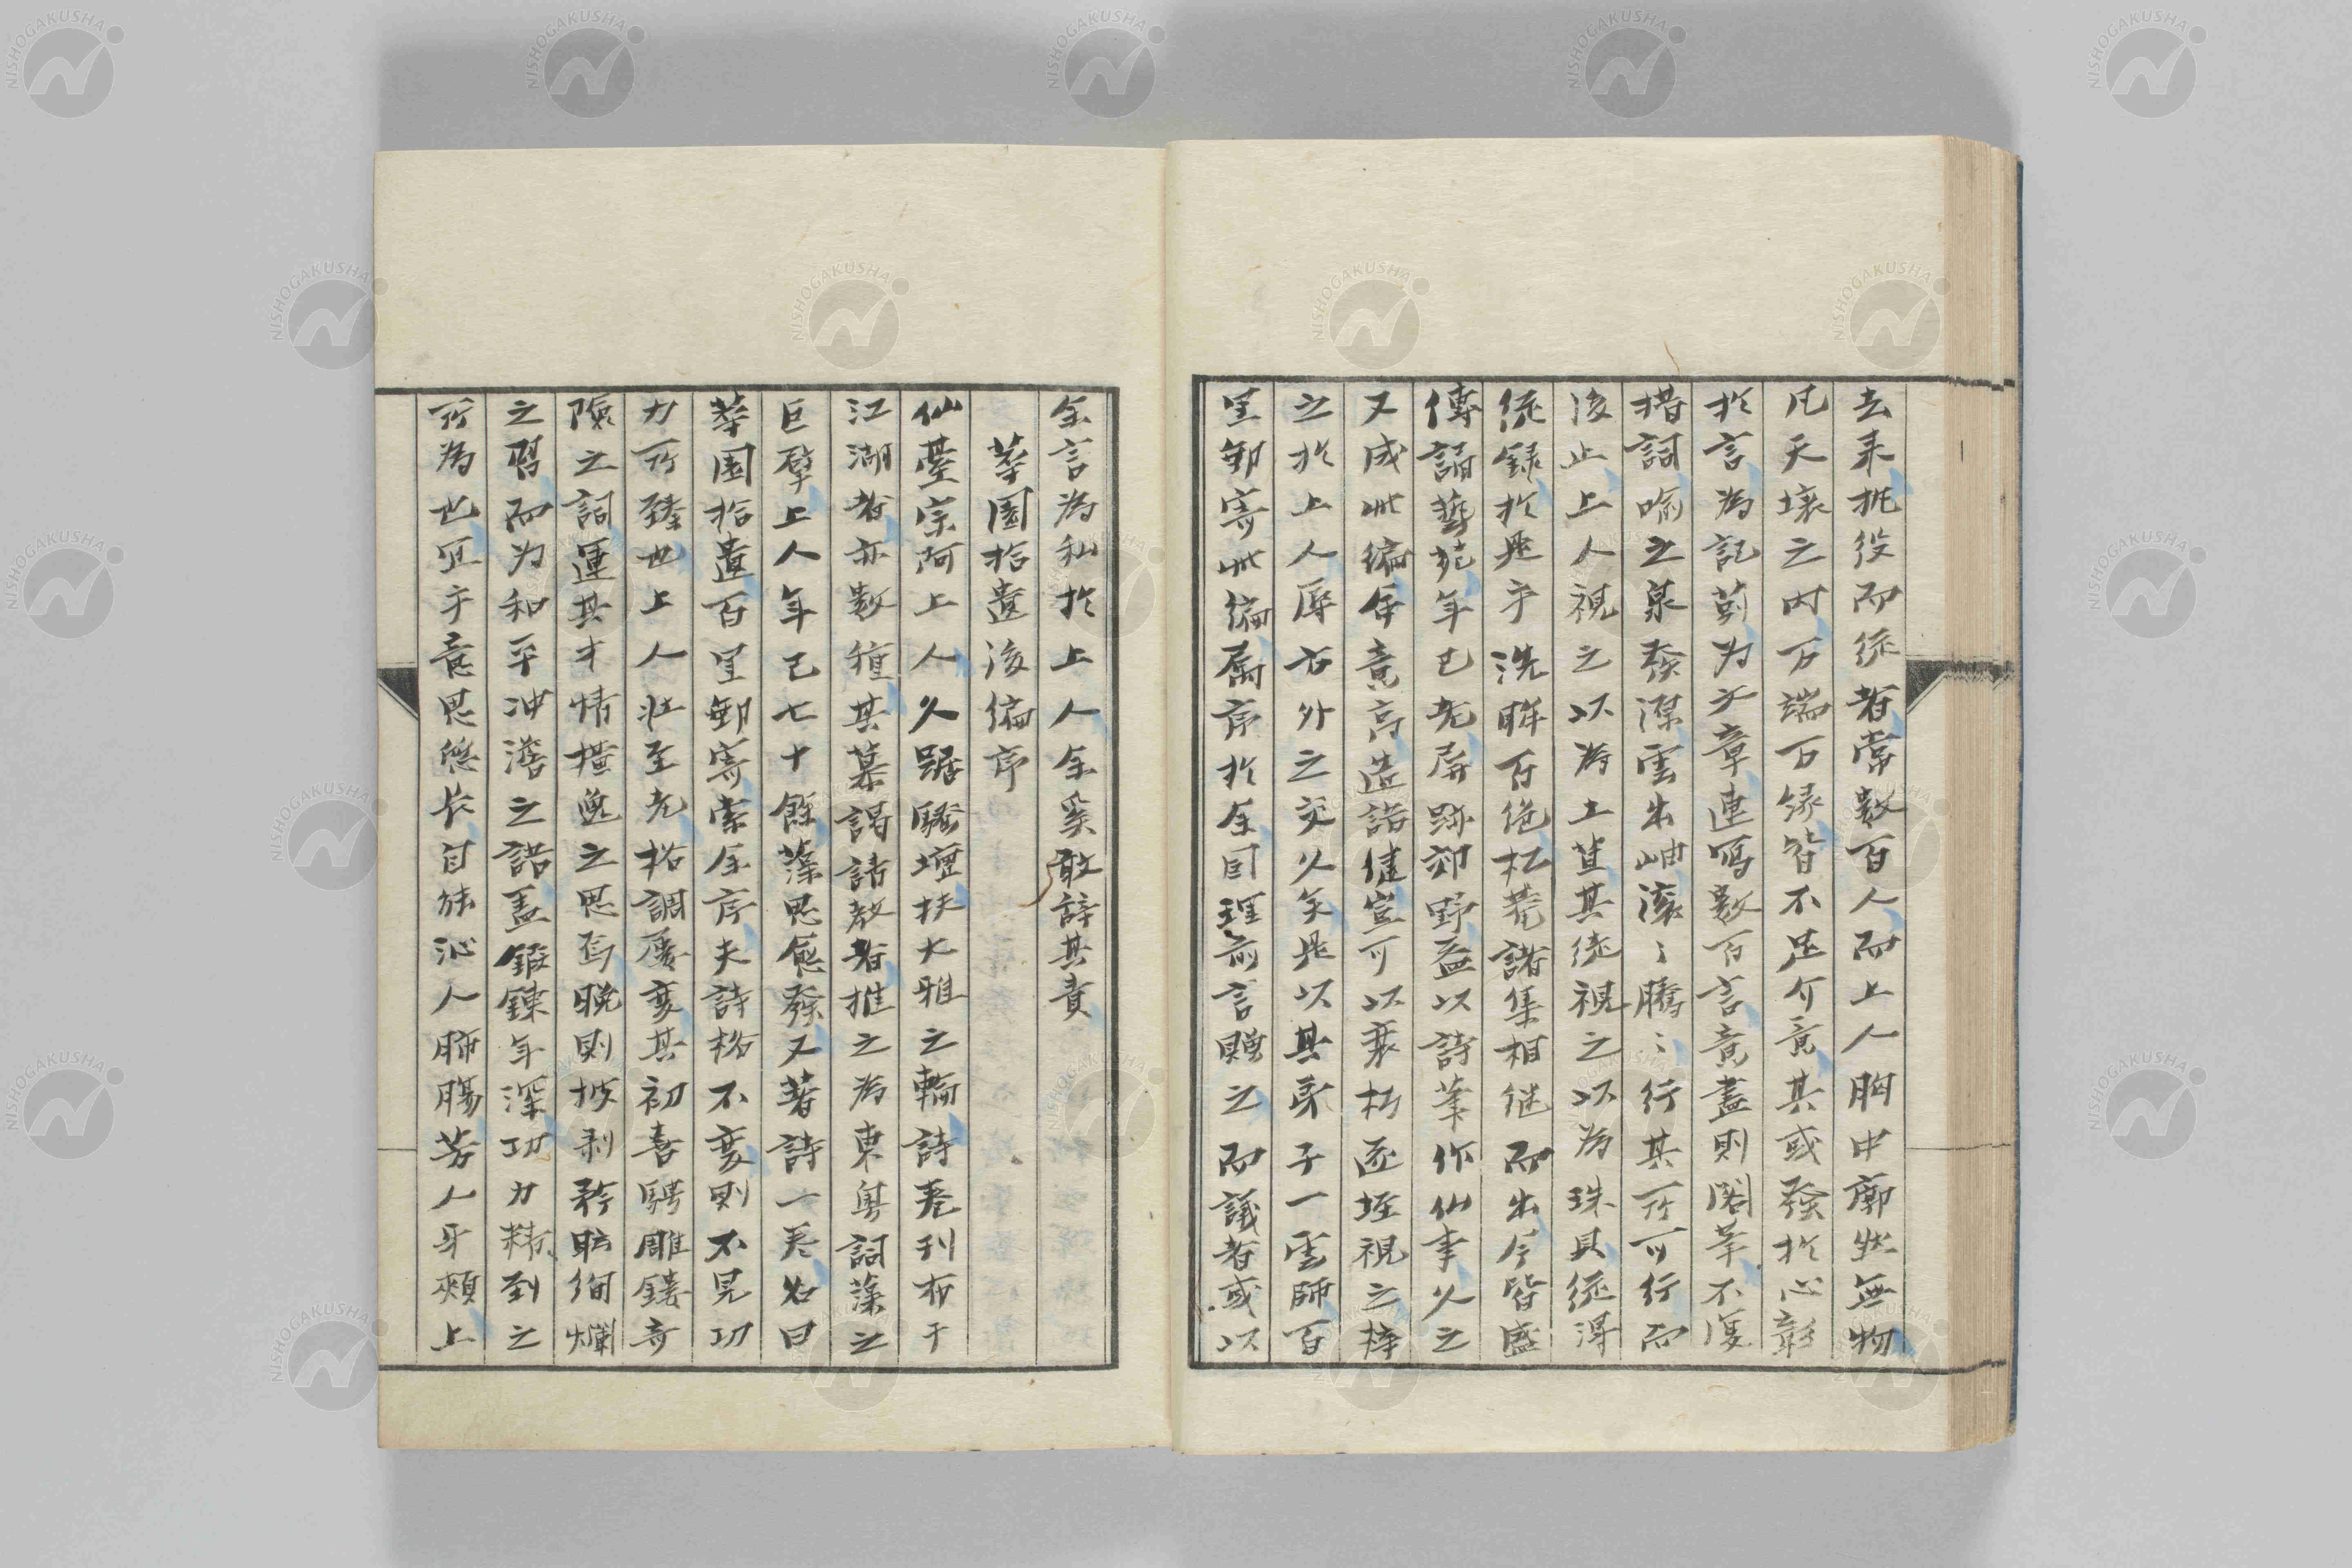 去来扼役而従者常数百人而上人胸中廓然無物
凡天壌之内万端万縁皆不足介意其或発於心彰
於言為記莂为文章連写数百言意盡則閣筆不復
措詞喩之泉發深雲出岫滾〻騰〻行其所可行而
後止上人視之以為土苴其徒視之以為珠貝従得
従録於是乎洗眸百絶松菴諸集相継而出今皆盛
傳誦藝苑年已老屏跡郊野益以詩筆作仙事久之
又成此編命意高造語健豈可以衰朽逐垤視之梓
之於上人辱方外之交久矣是以其弟子一雲師百
里郵寄此編属序於余因理前言贈之而議者或以
余言為私於上人余奚敢辞其責
華園拾遺後編序
仙臺宗阿上人久踞騒壇扶大雅之輪詩巻刊布于
江湖者亦数種其慕謁請教者推之為東奥詞藻之
巨擘上人年已七十餘藻思愈發又著詩一巻名曰
華園拾遺百里郵寄索余序夫詩格不変則不見功
力所臻也上人壮至老格調屡変其初喜騁雕鏤奇
険之詞運其才情横逸之思焉晩則披剥矜眩絢爛
之習而为和平冲澹之語盖鍛錬年深功力精到之
所為也宜乎意思悠长自能沁人肺腸芳人牙頰上
NISHOGAKUSHA